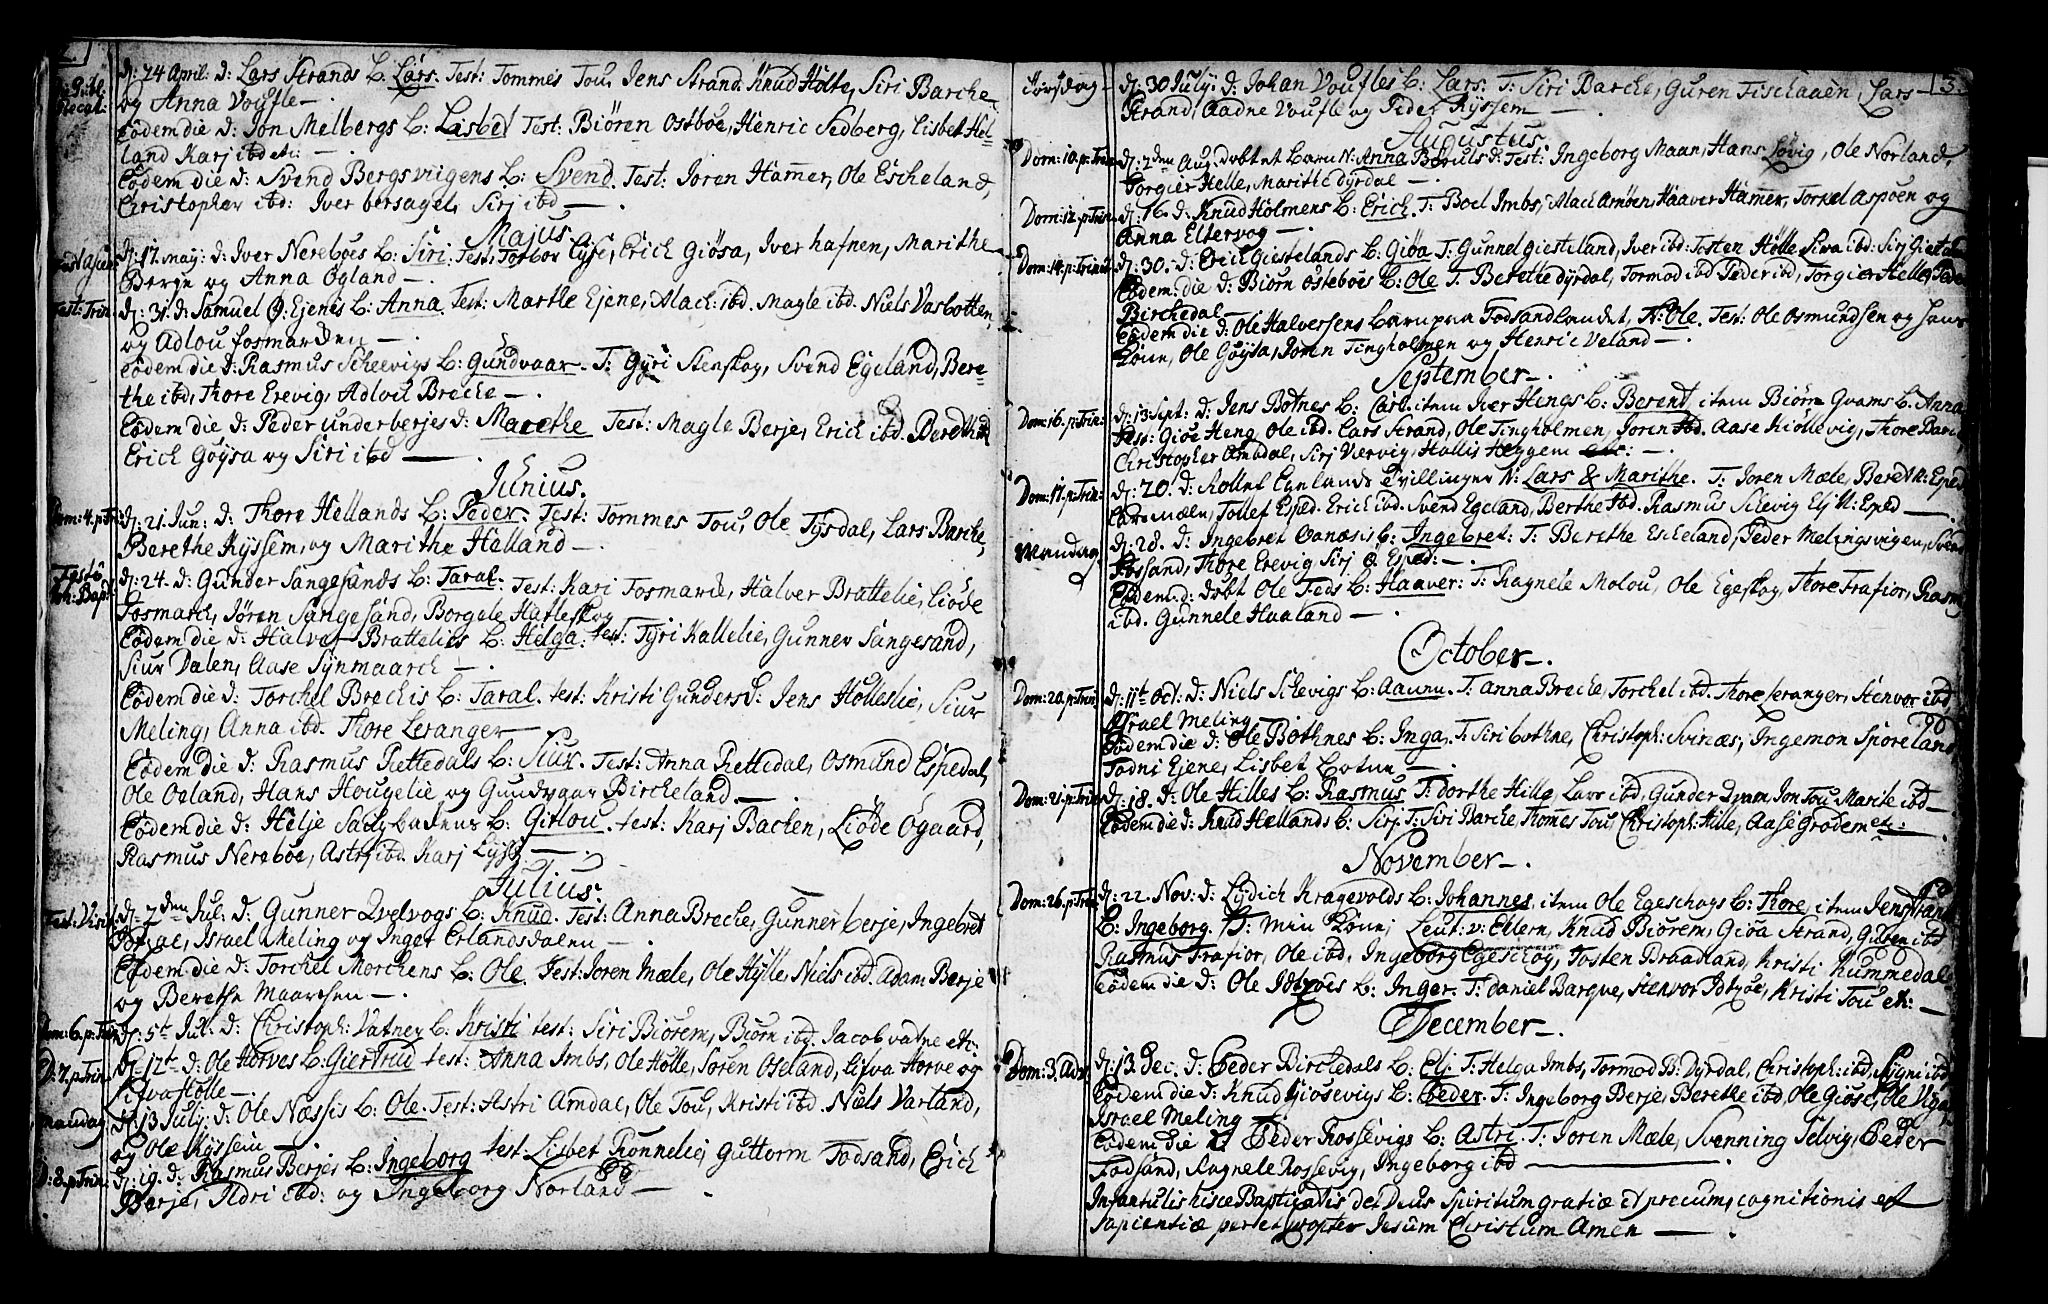 d: 24 April: d: Lars Strands B: Lars. Test: Tommes Tou, Jens Strand. Knud Holte, Siri Barche
og Anna Voufle —
Eodem die d: Jon Melbergs B: Lisbet Test: Biören Ostböe, Henric Sedberg, Lisbet Hel-
land Karj ibd etc: —
Eodem die d: Svend Bergsviigens B: Svend. Test: Joren Hammer, Ole Escheland,
Christopher ibd: Iver bersagel, Sirj ibd —
Majus.
Fest: Ascen: d: 17. may: d: Iver Nereböes B: Siri. Test: Torbor Lyse, Erich Giösa, Iver hafnen, Marithe
Berge og Anna Ogland —.
Fest: Trin: d: 31. d: Samuel Ejenes B: Anna. Test: Marthe Ejene, Alach ibd. Magle ibd. Niels Vasbotten,
og Adlou fosmarchen —
Eodem die d: Rasmus Scheevigs B: Gundvaar. T: Gyri Stenskog, Svend Egeland, Bere-
the ibd, Thore Erevig, Adlou Breche —.
Eodem die d: Peder underberjes d: Marethe Test: Magle Berje, Erich ibd. Bereth ibd
Erich Göysa og Siri ibd —
Junius.
Dom: 4. p: Tri: d: 21. Jun: d: Thore Hellands B: Peder. Test: Tommes Tou, Ole Tysdal, Lars Barche,
Berethe Kyssem, og Marithe Helland —.
Festo Joh: Bapt: d: 24. d: Gunder Sangesands B: Taral. Test: Kari Fosmarck, Halver Brattelie, Liöde
Fosmarch, Jören Sangesand, Borgele Hatleskog
Eodem die d: Halvar Brattelies B: Helga. test: Tyri Kallelie, Gunner Sangesand,
Siur Dalen, Aase Synmaarch —.
Eodem die d: Torchel Brechis B: Taral. test: Kristi Gundersd: Jens Holleslie, Siur
Meling, Anna ibd. Thore Leranger —
Eodem die d: Rasmus Rettedals B: Siur. Test: Anna Rettedal, Osmund Espedal,
Ole Oeland, Hans Hougelie og Gundvaar Bircheland. —
Eodem die d: Helje Sachsbachens B: Gitlou. test: Karj Bachen, Liöde Ogaard,
Rasmus Nereböe, Astri ibd. Karj Lyse —
Julius.
Fest: Visit: d: 2den Jul: d: Gunner Qvelvogs B: Knud. Test: Anna Breche, Gunner berje, Ingebret
Israel Meling og Inger Erlandsdalen —.
Eodem die d: Torchel Morchens B: Ole. Test: Joren Mæle, Ole Hylle, Niels ibd. Adam Berje
og Berethe Maarchen —.
Dom: 6. p: Trin: d: 5t Jul: d: Christoph: Vatney B: Kristi test: Siri Biörem, Biörn ibd. Jacob vatne etc:
D: 7. p Trin: d: 12t d: Ole Horves B: Giertrud test: Anna Imbs, Ole Holle, Sören Oseland, Lifva Horve og
Lifva Holle —
mandag d: 13 July: d: Ole Næssis B: Ole. Test: Astri Amdal, Ole Tou, Kristi ibd. Niels Varland,
og Ole Kyssem —
D: 8. p Trin: d: 19. d: Rasmus Berjes B: Ingeborg test. Lisbet Ronnelie, Guttorm Fodsand, Erich
Berje, Adri ibd: og Ingeborg Norland —
3.
Torsdag d: 30 July: d: Johan Voufles B: Lars. T: Siri Barche, Guren Fischaaen, Lars
Strand, Aadne Voufle og Peder Kyssem —
Augustus.
Dom: 10. p: Trin d: 2den Aug: döbt et barn N: Anna Pouls d: Test: Ingeborg Maan, Hans Lövig, Ole Norland,
Torgier Helle, Marithe Dyrdal —
Dom: 12. p: Trin d: 16. d: Knud Holmens B: Erich. T: Boel Imbs, Alach Amöen, Haaver Hammer, Torkel Aspöen og
Anna Eltervog —
Dom: 14. p: Trinit d: 30. d: Erich Giestelands B: Gioa T: Gunnel Giesteland, Iver ibd: Tosten Hölle Siva ibd: Sirj Giestel
Eodem die d: Biörn Osteböes B: Ole T: Berethe Dyrdal, Tormod ibd Peder ibd, Torgier Helle, Peder
Birchedal —
Eodem die d: Ole Halversens barn paa Fodsandlandet, N: Ole. Test: Ole Osmundsen og Hans
Kone, Ole Göysa, Joren Tingholmen og Henric Veland —
September —
Dom: 16. p: Trin: d: 13 Sept: d: Jens Botnes B: Carl. item Iver Hengs B: Berent item Biörn Qvams B: Anna
Test: Gioe Heng Ole ibd. Lars Strand, Ole Tingholmen, Joren ibd. Aase Kiöllevig, Thore
Christopher Ambdal, Sirj Værvig, Hollis Heggem etc: —.
Dom: 17. p: Trin: d: 20. d: Rollef Egelands Tvillinger N: Lars & Marithe. T: Joren Mæle, Bereth N: Esped
Lars mæle, Tollef Esped. Erich ibd. Svend Egeland, Berthe ibd. Rasmus Schevig Elj N: Esped —
Mandag d: 28. d: Ingebret Oanæsis B: Ingebret: T: Berethe Escheland, Peder Melingsvigen, Svend
Fossand, Thore Erevig Sirj Ø Esped: —.
Eodem: d: döbt Ole Feds B: Haaver: T: Ragnele Molou, Ole Egeskog, Thore Frafior, Rasm
ibd. Gunnele Haaland —.
October —.
Dom: 20. p: Trin: d: 11t Oct: d: Niels Schevigs B: Aaunu. T: Anna Breche, Torchel ibd. Thore Leranger, Stenvor ibd og
Israel Meling
Eodem die d: Ole Bothnes B: Inga. T: Siri bothne, Christoph: Svinæs, Ingemon Sporeland
Todni Ejene, Lisbet Botne —.
Dom: 21. p: Trin: d: 18. d: Ole Hilles B: Rasmus T: Dorthe Hille Lars ibd, Gunder Qvam, Jon Tou, Marite ibd —
Eodem die d: Knud Hellands B: Sirj. T: Siri Barche, Thomes Tou, Christoph: Hille, Aase Grödem etc: —
November —.
Dom: 26. p: Trin: d: 22. Nov: d: Lydich Kragevolds B: Johannes, item Ole Egeschogs B: Thore, item Jens Strands
B: Ingeborg. T: min Kone, Leut: v: Ellern, Knud Biörem, Gioa Strand, Guren ibd,
Rasmus Frafior, Ole ibd. Ingeborg Egeschog, Tosten Braadland, Kristi Kummedal
Eodem die d: Ole Idtzöes B: Inger. T: Daniel Barque, Stenvor Idtzöe, Kristi Tou etc: —
December —.
Dom: 3. Adv: d: 13. Dec: d: Peder Birchedals B: Elj. T: Helga Imbs, Tormod B: Dyrdal, Christoph: ibd, Signi ibd
Eodem die d: Knud Kiosevigs B: Peder. T: Ingeborg Berje, Berethe ibd, Ole Giöse, Ole
Israel Meling —
Eodem die d: Peder Fossevigs B: Astri. T: Joren Mæle, Svenning Selvig, Peder
Fodsand, Ragnele Rossevig, Ingeborg ibd —
Infantulis hisce Baptizatis det Deus Spiritum gratiæ et precum, cognitionis et
Sapientiæ per et propter Jesum Christum Amen —.